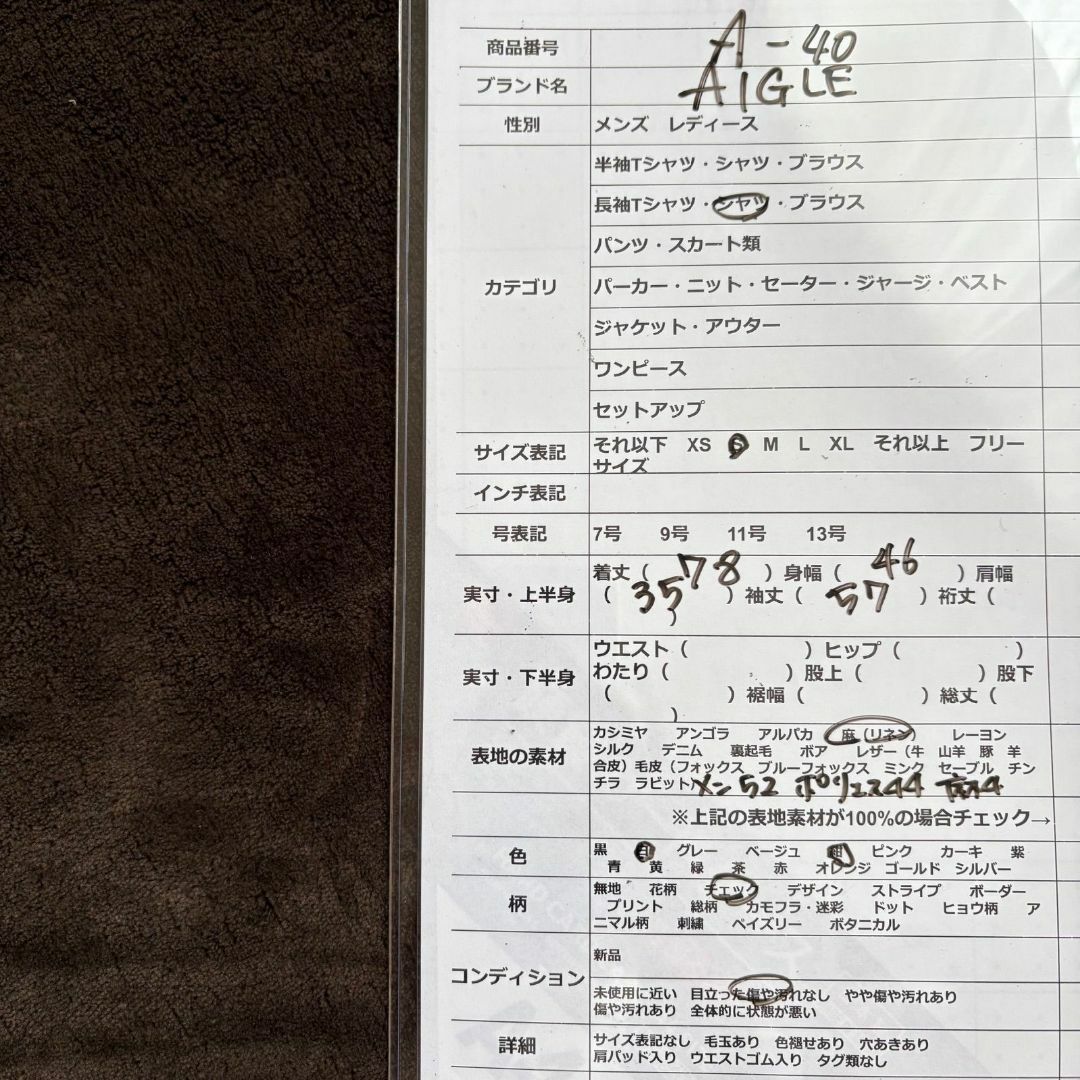 商品番号 A-40
ブランド名 AIGLE
性別 メンズ レディース
半袖Tシャツ・シャツ・ブラウス
長袖Tシャツ・シャツ・ブラウス
パンツ・スカート類
カテゴリ パーカー・ニット・セーター・ジャージ・ベスト
ジャケット・アウター
ワンピース
セットアップ
サイズ表記 それ以下 XS S M L XL それ以上 フリー
サイズ
インチ表記
号表記 7号 9号 11号 13号
着丈（ 78 ）身幅（ 46 ）肩幅
実寸・上半身 （ 35 ）袖丈（ 57 ）裄丈（
）
ウエスト（ ）ヒップ（ ）
実寸・下半身 わたり（ ）股上（ ）股下
（ ）裾幅（ ）総丈（
）
カシミヤ アンゴラ アルパカ 麻（リネン） レーヨン
シルク デニム 裏起毛 ボア レザー（牛 山羊 豚 羊
表地の素材 合皮）毛皮（フォックス ブルーフォックス ミンク セーブル チン
チラ ラビット） メン52 ポリエス44 麻4
※上記の表地素材が100%の場合チェック→
色 黒 白 グレー ベージュ 紺 ピンク カーキ 紫
青 黄 緑 茶 赤 オレンジ ゴールド シルバー
無地 花柄 チェック デザイン ストライプ ボーダー
柄 プリント 総柄 カモフラ・迷彩 ドット ヒョウ柄 ア
ニマル柄 刺繍 ペイズリー ボタニカル
新品
コンディション
未使用に近い 目立った傷や汚れなし やや傷や汚れあり
傷や汚れあり 全体的に状態が悪い
詳細 サイズ表記なし 毛玉あり 色褪せあり 穴あきあり
肩パッド入り ウエストゴム入り タグ類なし